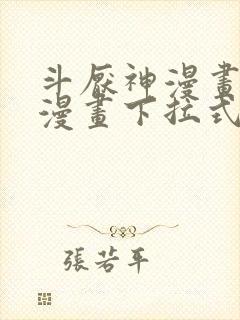 斗厭神漫畫
漫畫下拉式
張若平